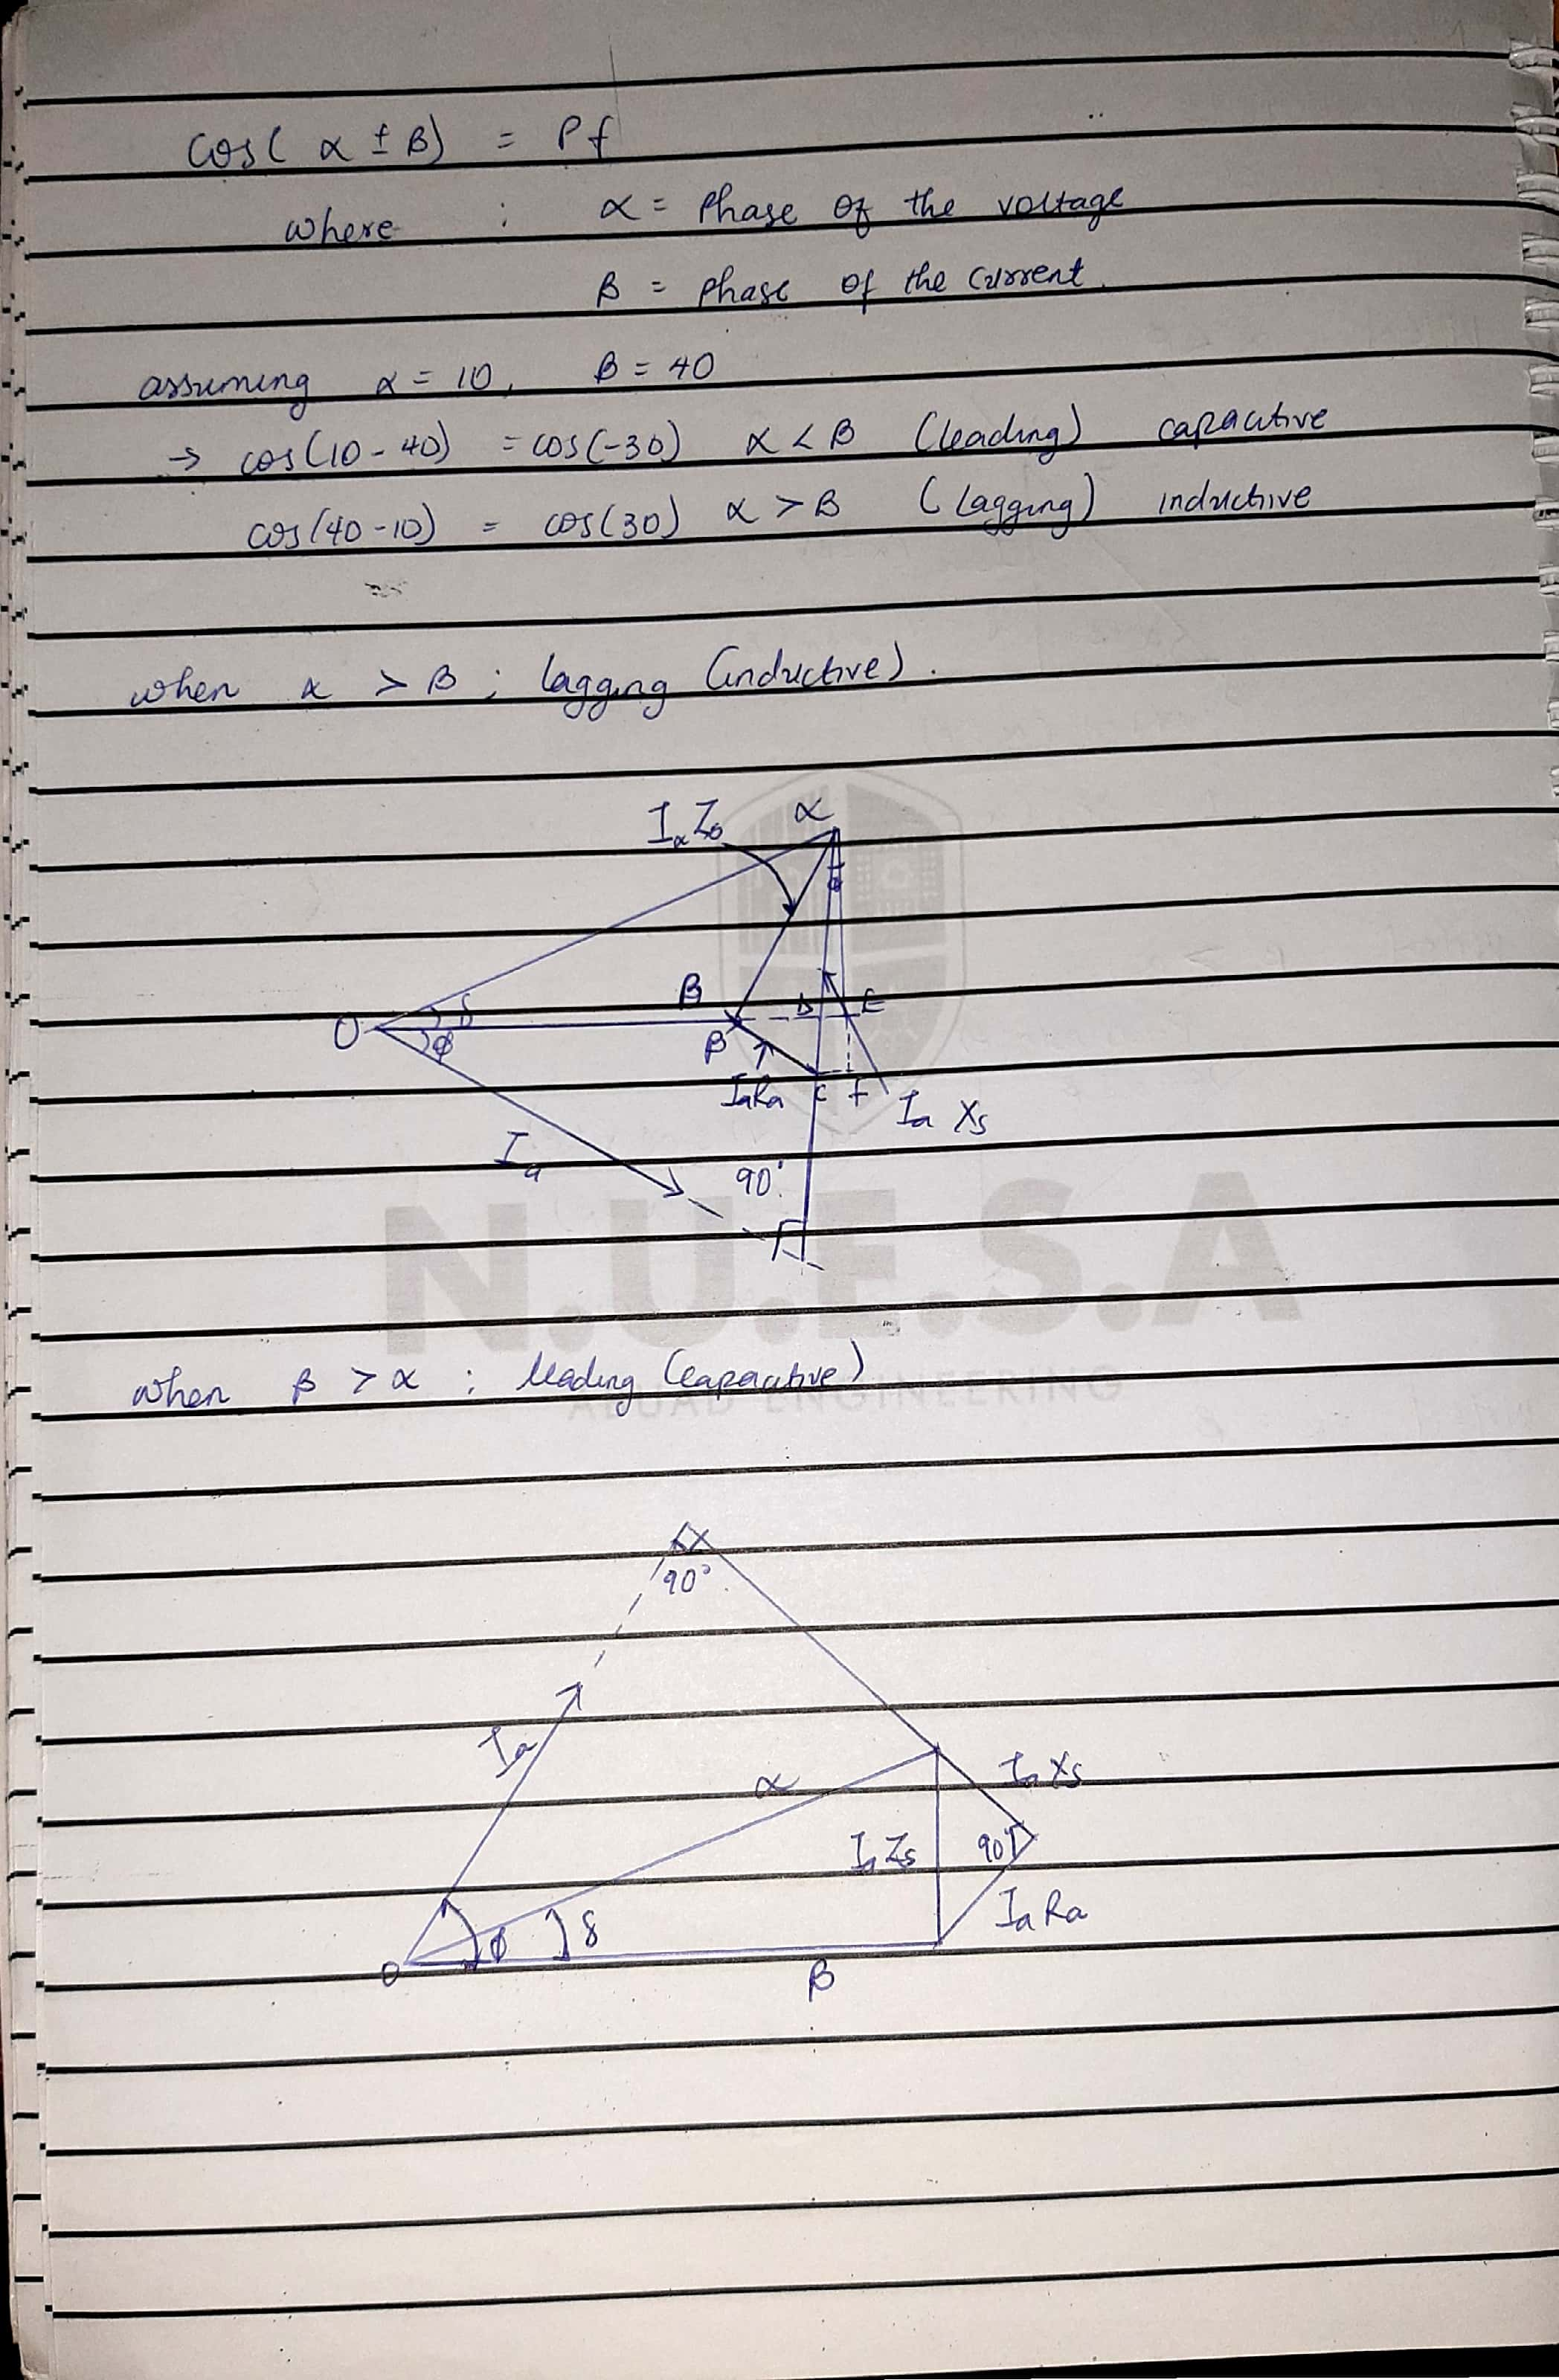 cos( α ± β) = Pf
where : α = Phase of the voltage
β = phase of the current.
assuming α = 10, β = 40
→ cos(10 - 40) = cos(-30) α < β (leading) capacitive
cos(40 - 10) = cos(30) α > β (lagging) inductive
when α > β ; lagging (inductive).
α
δ
β
D E
O
ϕ
β
IaRa
C f
Ia Xs
Ia
90°
N.U.E.S.A
when β > α ; leading (capacitive)
ABUAD ENGINEERING
90°
Ia
α
Ia Xs
Ia Zs
90°
Ia Ra
ϕ
δ
O
β